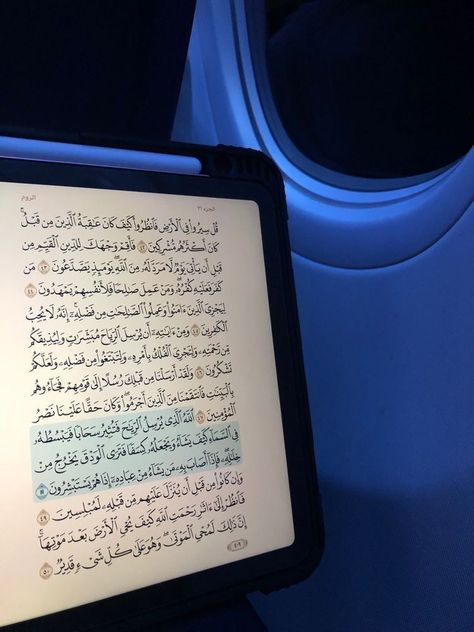 الجزء ٢١ الروم
قُلْ سِيرُوا۟ فِى ٱلْأَرْضِ فَٱنظُرُوا۟ كَيْفَ كَانَ عَـٰقِبَةُ ٱلَّذِينَ مِن قَبْلُ ۚ
كَانَ أَكْثَرُهُم مُّشْرِكِينَ ٤٢ فَأَقِمْ وَجْهَكَ لِلدِّينِ ٱلْقَيِّمِ مِن
قَبْلِ أَن يَأْتِىَ يَوْمٌ لَّا مَرَدَّ لَهُۥ مِنَ ٱللَّهِ ۖ يَوْمَئِذٍ يَصَّدَّعُونَ ٤٣ مَن
كَفَرَ فَعَلَيْهِ كُفْرُهُۥ ۖ وَمَنْ عَمِلَ صَـٰلِحًا فَلِأَنفُسِهِمْ يَمْهَدُونَ ٤٤
لِيَجْزِىَ ٱلَّذِينَ ءَامَنُوا۟ وَعَمِلُوا۟ ٱلصَّـٰلِحَـٰتِ مِن فَضْلِهِۦٓ ۚ إِنَّهُۥ لَا يُحِبُّ
ٱلْكَـٰفِرِينَ ٤٥ وَمِنْ ءَايَـٰتِهِۦٓ أَن يُرْسِلَ ٱلرِّيَاحَ مُبَشِّرَٰتٍ وَلِيُذِيقَكُم
مِّن رَّحْمَتِهِۦ وَلِتَجْرِىَ ٱلْفُلْكُ بِأَمْرِهِۦ وَلِتَبْتَغُوا۟ مِن فَضْلِهِۦ وَلَعَلَّكُمْ
تَشْكُرُونَ ٤٦ وَلَقَدْ أَرْسَلْنَا مِن قَبْلِكَ رُسُلًا إِلَىٰ قَوْمِهِمْ فَجَآءُوهُم
بِٱلْبَيِّنَـٰتِ فَٱنتَقَمْنَا مِنَ ٱلَّذِينَ أَجْرَمُوا۟ ۖ وَكَانَ حَقًّا عَلَيْنَا نَصْرُ
ٱلْمُؤْمِنِينَ ٤٧ ٱللَّهُ ٱلَّذِى يُرْسِلُ ٱلرِّيَـٰحَ فَتُثِيرُ سَحَابًا فَيَبْسُطُهُۥ
فِى ٱلسَّمَآءِ كَيْفَ يَشَآءُ وَيَجْعَلُهُۥ كِسَفًا فَتَرَى ٱلْوَدْقَ يَخْرُجُ مِنْ
خِلَـٰلِهِۦ ۖ فَإِذَآ أَصَابَ بِهِۦ مَن يَشَآءُ مِنْ عِبَادِهِۦٓ إِذَا هُمْ يَسْتَبْشِرُونَ
وَإِن كَانُوا۟ مِن قَبْلِ أَن يُنَزَّلَ عَلَيْهِم مِّن قَبْلِهِۦ لَمُبْلِسِينَ ٤٩
فَٱنظُرْ إِلَىٰٓ ءَاثَـٰرِ رَحْمَتِ ٱللَّهِ كَيْفَ يُحْىِ ٱلْأَرْضَ بَعْدَ مَوْتِهَآ ۚ
إِنَّ ذَٰلِكَ لَمُحْىِ ٱلْمَوْتَىٰ ۖ وَهُوَ عَلَىٰ كُلِّ شَىْءٍ قَدِيرٌ ٥٠
٤٠٩